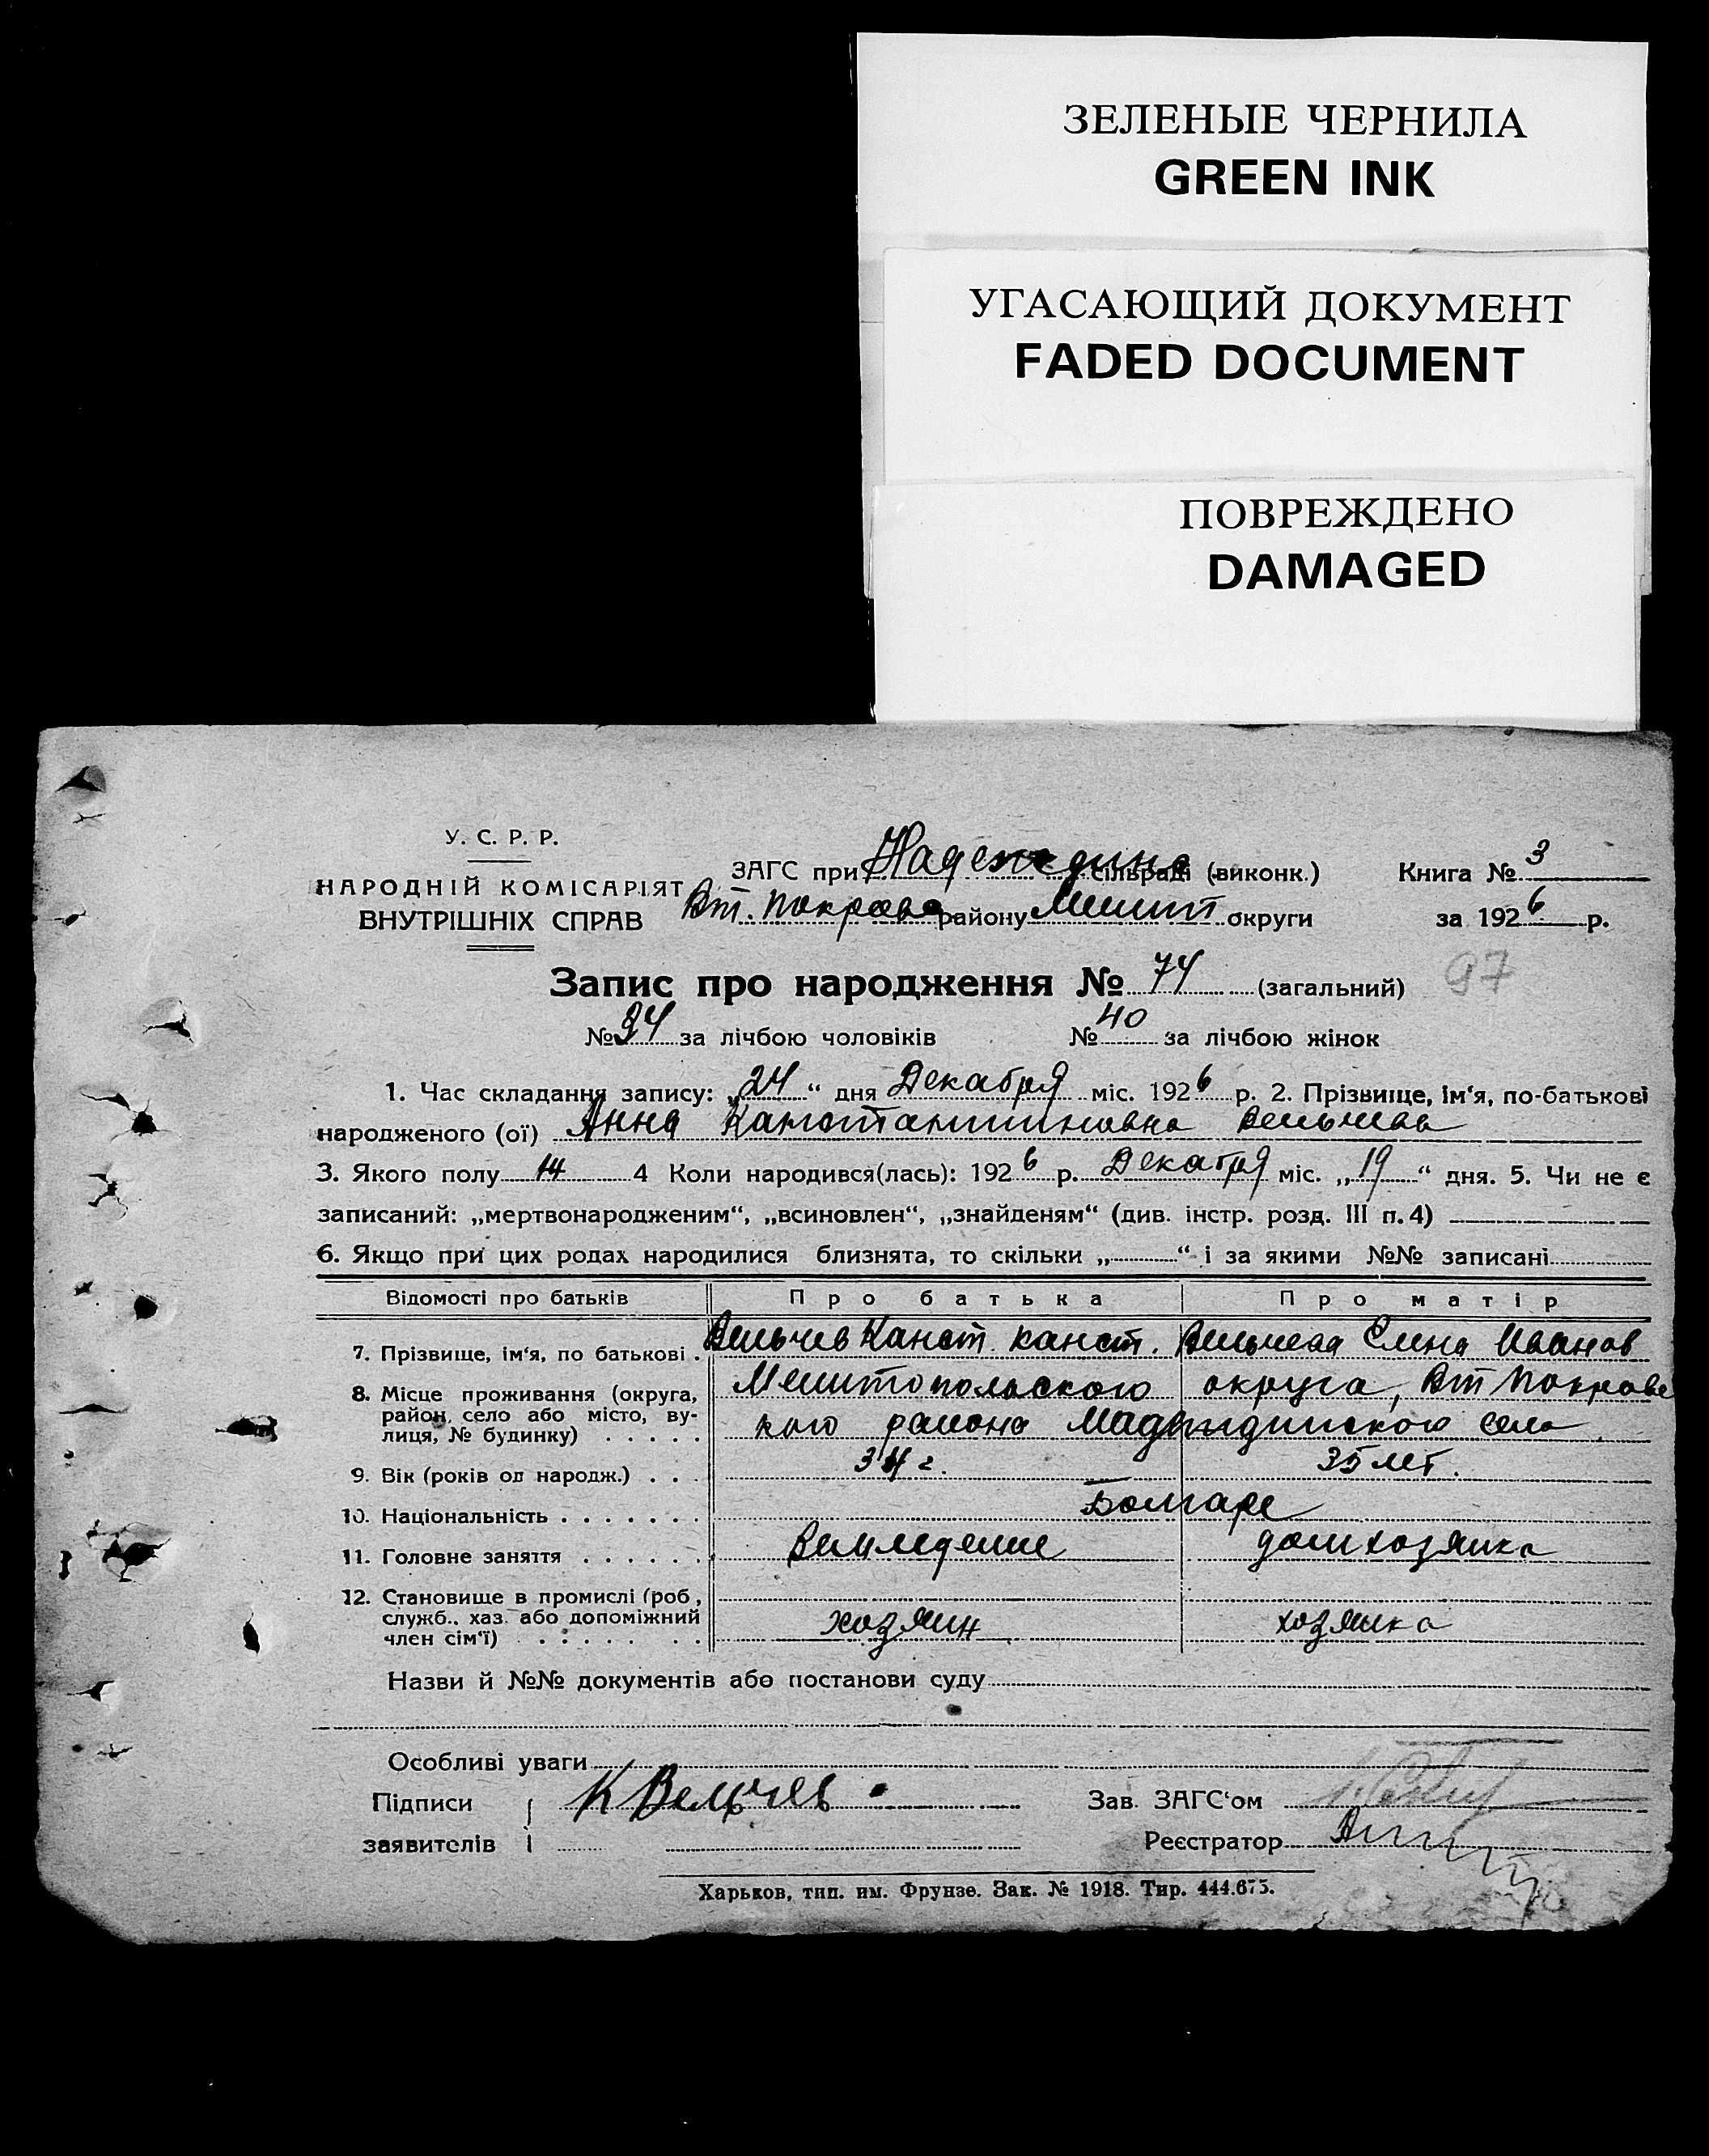 ЗЕЛЕНЫЕ ЧЕРНИЛА
GREEN INK
УГАСАЮЩИЙ ДОКУМЕНТ
FADED DOCUMENT
ПОВРЕЖДЕНО
DAMAGED
У. С. Р. Р.
НАРОДНІЙ КОМІСАРІЯТ
ВНУТРІШНІХ СПРАВ
ЗАГС при Надеждино сільраді (виконк.) Книга № 3
Вт. Покровс району Мелит округи за 1926 р.
Запис про народження № 74 (загальний) 97
№ 34 за лічбою чоловіків № 40 за лічбою жінок
1. Час складання запису: „24“ дня Декабря міс. 1926 р. 2. Прізвище, ім‘я, по-батькові
народженого (ої) Анна Канстантиновна Вельчева
3. Якого полу Ж 4 Коли народився(лась): 1926 р. Декабря міс. „19“ дня. 5. Чи не є
записаний: „мертвонародженим“, „всиновлен“, „знайденям“ (див. інстр. розд. III п. 4)
6. Якщо при цих родах народилися близнята, то скільки „ “ і за якими №№ записані
Відомості про батьків Про батька Про матір
7. Прізвище, ім‘я, по батькові Вельчев Канст. Канст. Вельчева Елена Иванов
8. Місце проживання (округа, район, село або місто, вулиця, № будинку) Мелитопольского округа, Вт Покровс
кого района Надеждинского села
9. Вік (років од народж.) 34 г. 35 лет.
10. Національність Болгаре
11. Головне заняття Земледелие домхозяйка
12. Становище в промислі (роб., служб., хаз. або допоміжний член сім‘ї) хозяин хозяйка
Назви й №№ документів або постанови суду
Особливі уваги
Підписи К Вельчев Зав. ЗАГС‘ом
заявителів Реєстратор
Харьков, тип. им. Фрунзе. Зак. № 1918. Тир. 444.675.